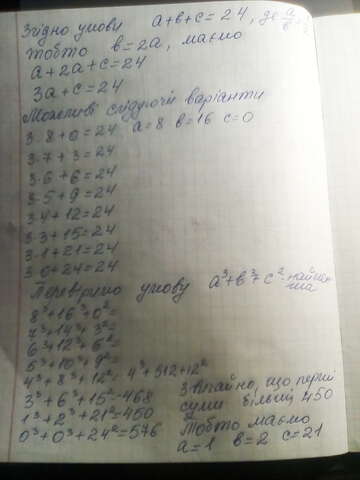 Згідно умови a+b+c=24, де a/b
тобто b=2a, маємо
a+2a+c=24
3a+c=24
Можливі слідуючі варіанти
3·8+0=24 a=8 b=16 c=0
3·7+3=24
3·6+6=24
3·5+9=24
3·4+12=24
3·3+15=24
3·1+21=24
3·0+24=24
Перевіримо умову a³+b³+c² - наймен-
ша
8³+16³+0²=
7³+14³+3²=
6³+12³+6²=
5³+10³+9²=
4³+8³+12²=4³+512+12²
3³+6³+15²=468
1³+2³+21²=450
0³+0³+24²=576
Звичайно, що перші
суми більші 450
Тобто маємо
a=1 b=2 c=21